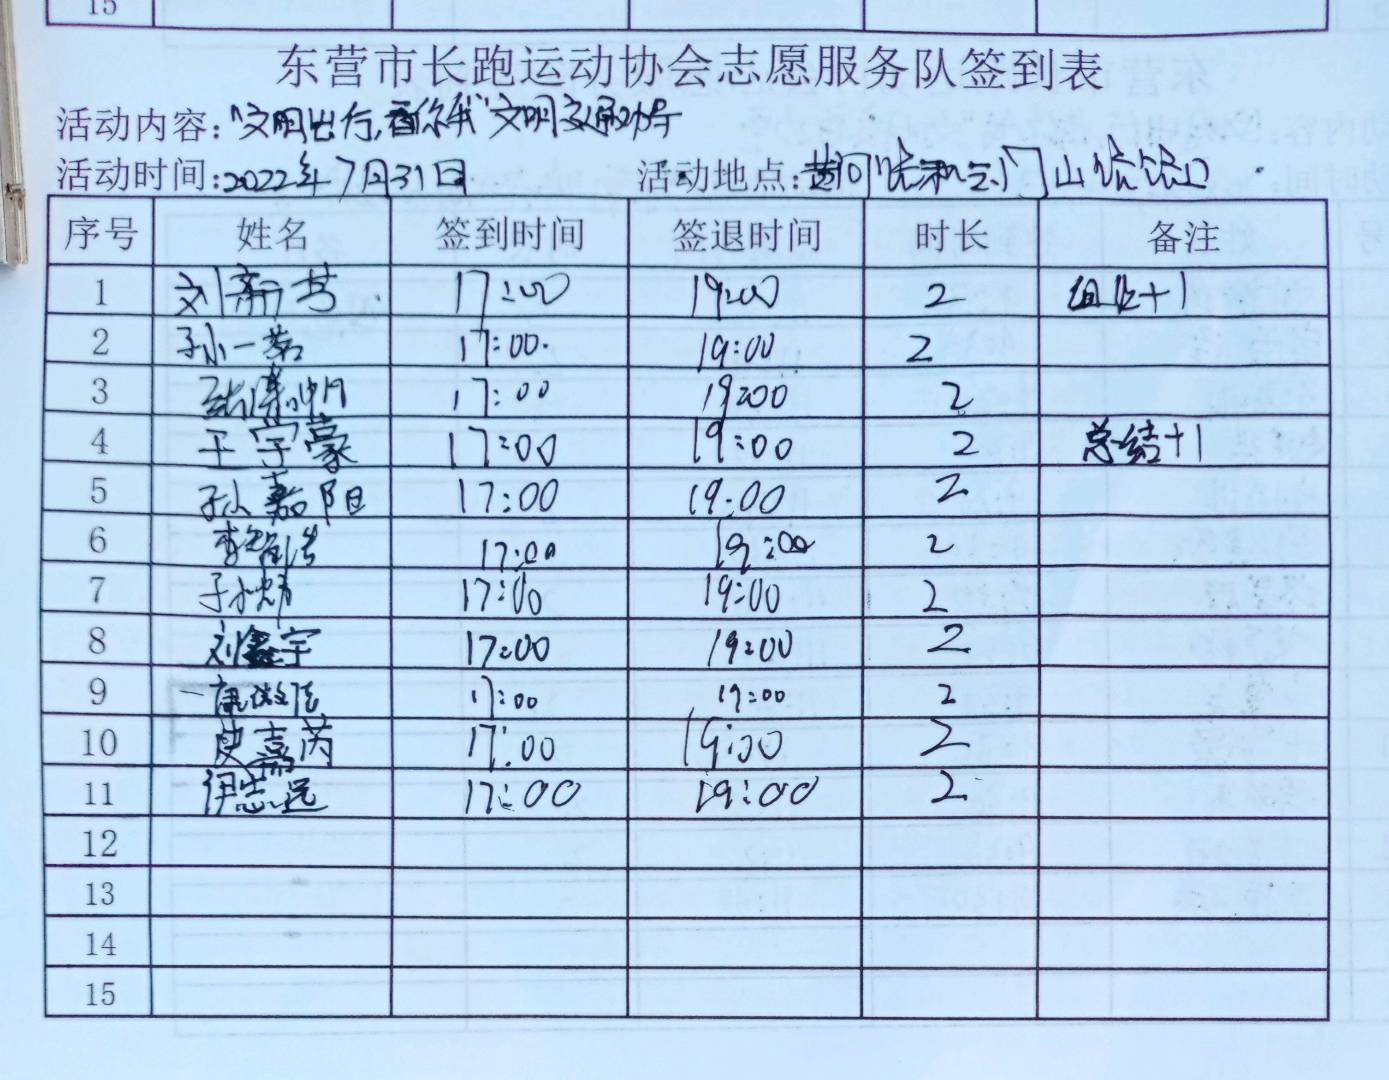 15
东营市长跑运动协会志愿服务队签到表
活动内容:"文明出行,看你我"文明交通劝导
活动时间:2022年7月31日 活动地点:黄河路和金门山路路口
序号 姓名 签到时间 签退时间 时长 备注
1 刘 17:00 19:00 2 +1
2 孙一 17:00 19:00 2
3 17:00 19:00 2
4 王宇豪 17:00 19:00 2 总结+1
5 孙嘉阳 17:00 19:00 2
6 李 17:00 19:00 2
7 17:00 19:00 2
8 刘鑫宇 17:00 19:00 2
9 17:00 19:00 2
10 史嘉芮 17:00 19:00 2
11 伊志远 17:00 19:00 2
12
13
14
15